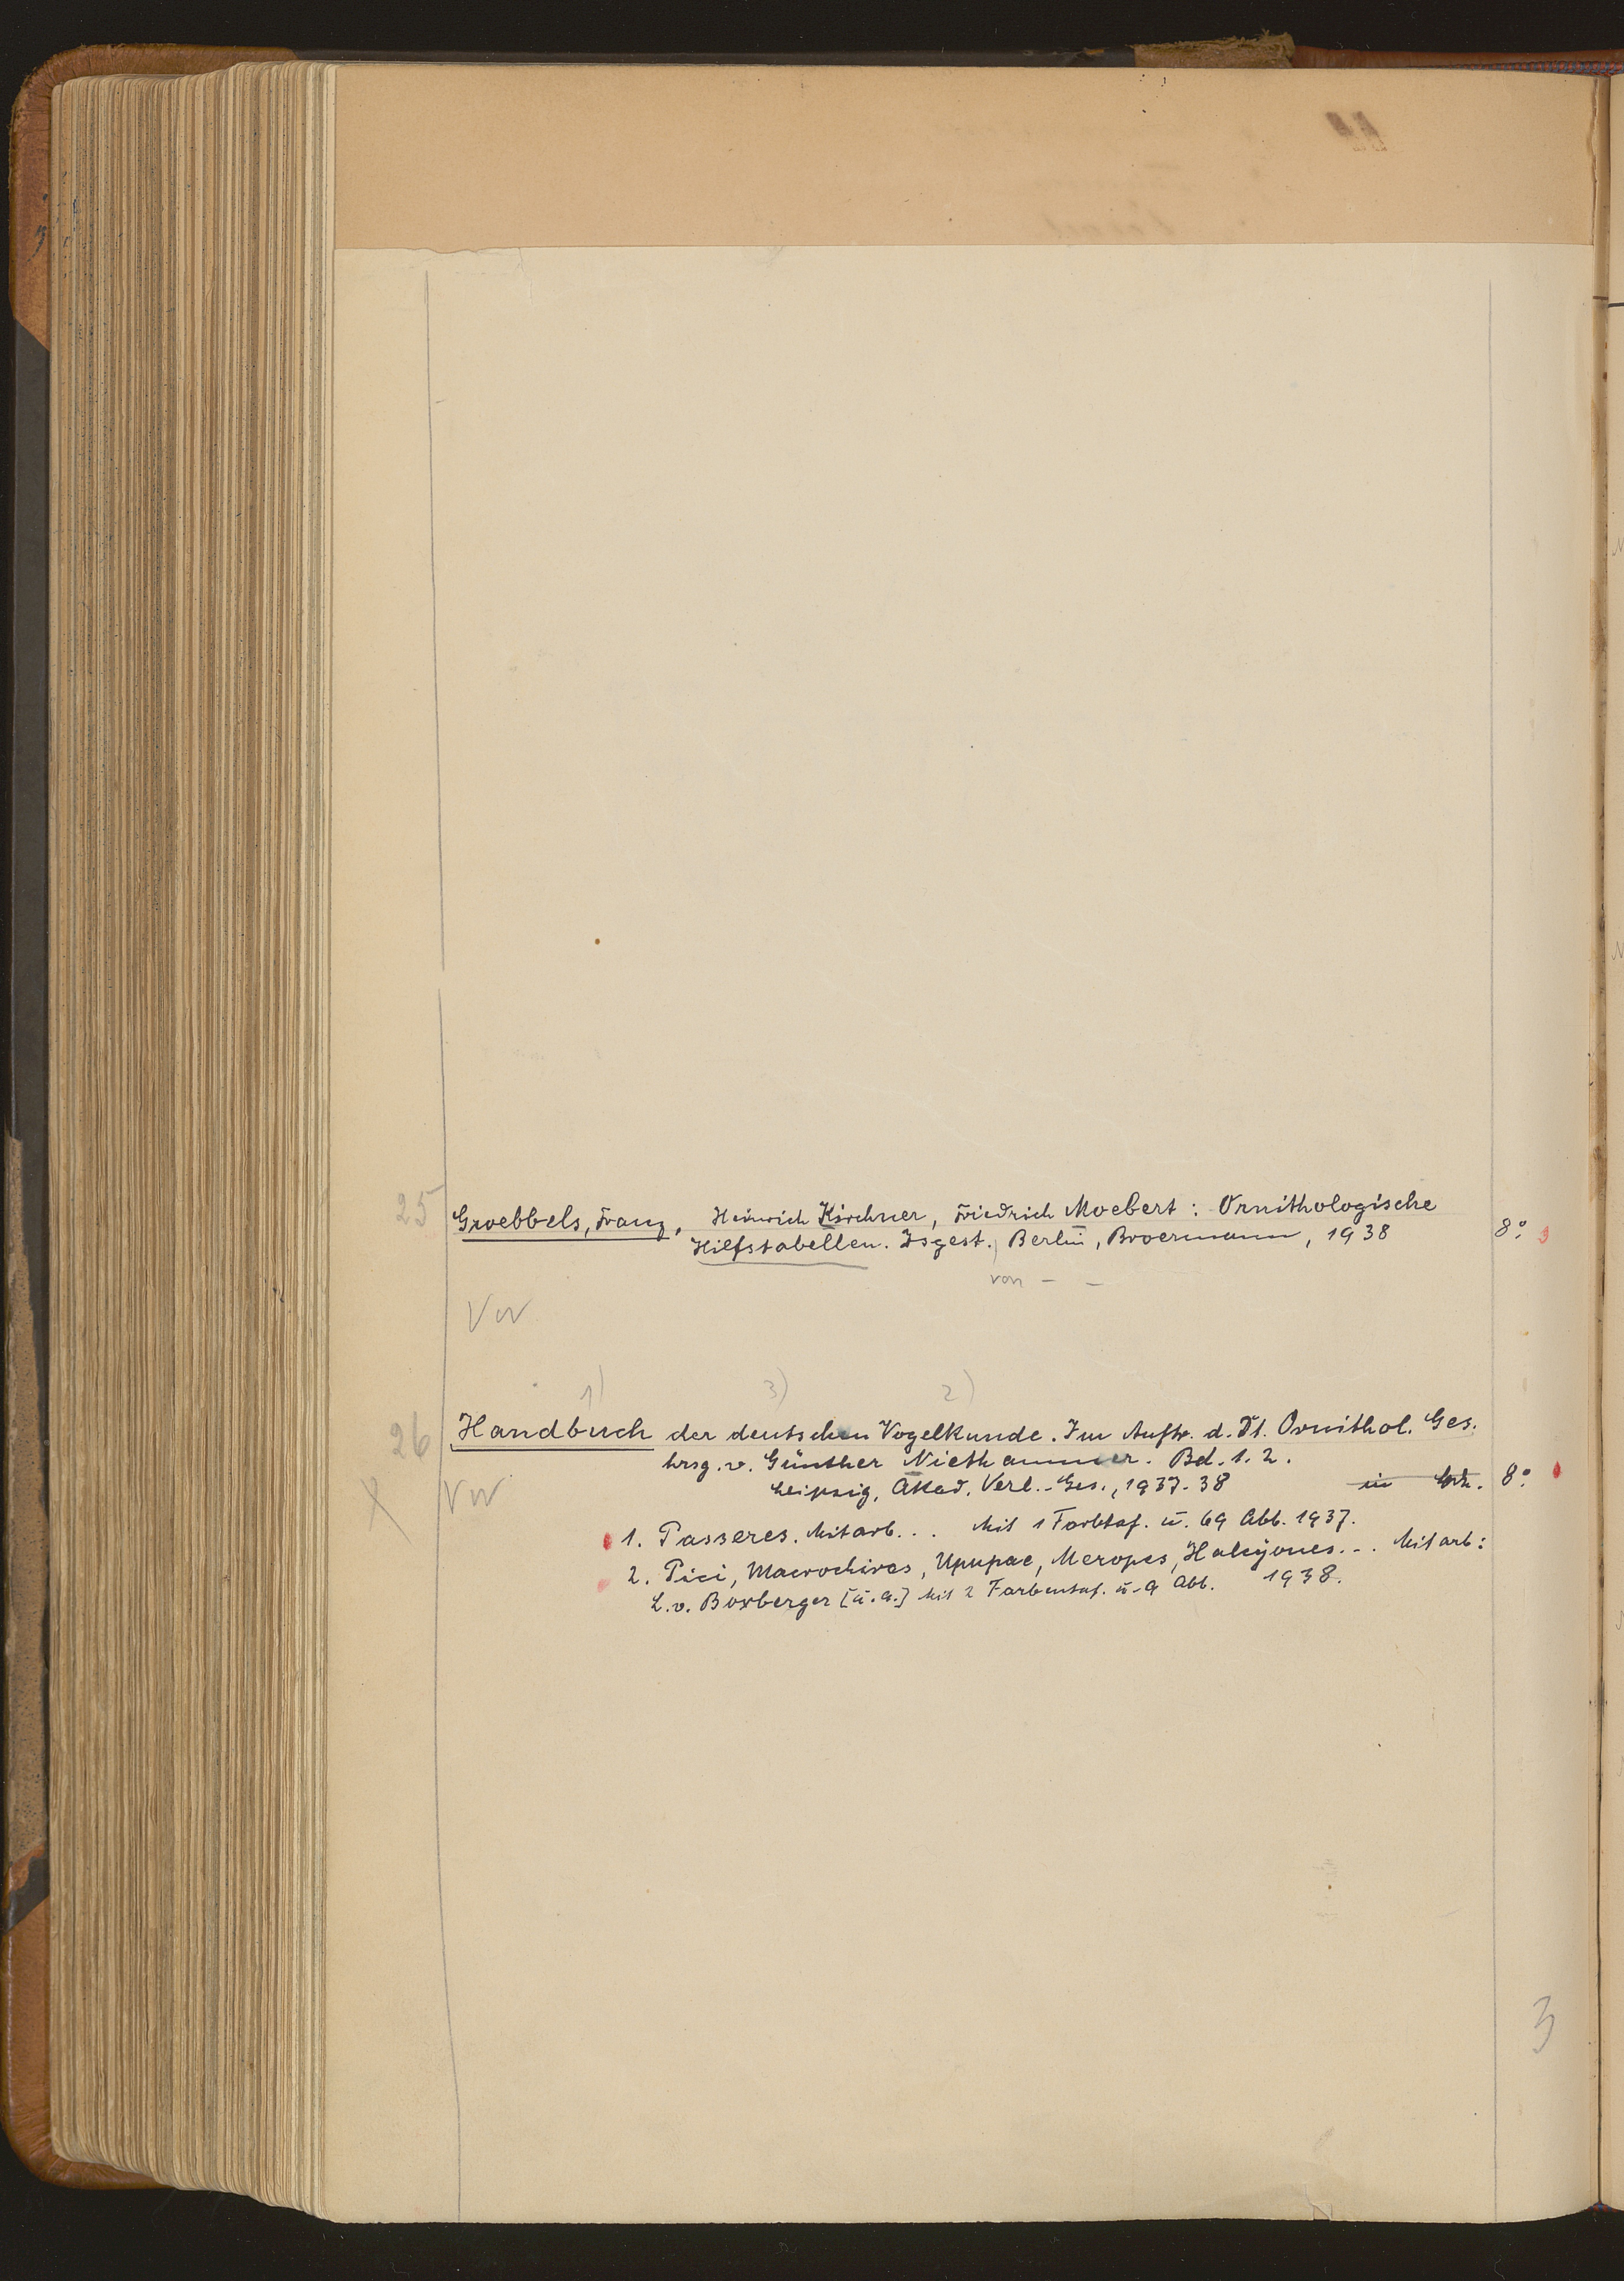 25 Groebbels, Franz, Heinrich Kirchner, Friedrich Moebert: Ornithologische
Hilfstabellen. Zsgest. Berlin, Broermann, 1938 8°
von – –
VW
1) 3) 2)
26 Handbuch der deutschen Vogelkunde. Im Auftr. d. Dt. Ornithol. Ges.
hrsg. v. Günther Niethammer. Bd. 1. 2.
X VW Leipzig, Akad. Verl.-Ges., 1937-38 in 8°
1. Passeres. Mitarb... Mit 1 Farbtaf. u. 69 Abb. 1937.
2. Pici, Macrochires, Upupae, Meropes, Halcyones... Mitarb:
L. v. Boxberger [u. a.] Mit 2 Farbentaf. u. 9 Abb. 1938.
3